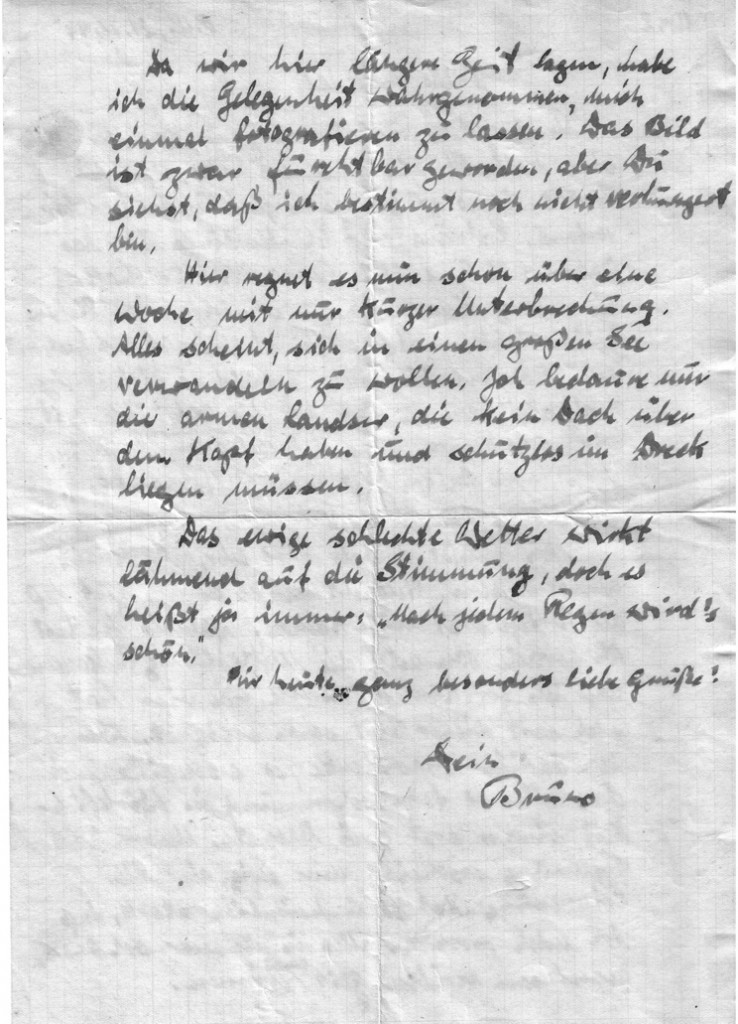 Da wir hier längere Zeit lagen, habe
ich die Gelegenheit wahrgenommen, mich
einmal fotografieren zu lassen. Das Bild
ist zwar furchtbar geworden, aber Du
siehst, daß ich bestimmt noch nicht verhungert
bin.
Hier regnet es nun schon über eine
Woche mit nur kurzer Unterbrechung.
Alles scheint, sich in einen großen See
verwandeln zu wollen. Ich bedaure nur
die armen Landser, die kein Dach über
dem Kopf haben und schutzlos im Dreck
liegen müssen.
Das ewige schlechte Wetter wirkt
lähmend auf die Stimmung, doch es
heißt ja immer: „Nach jedem Regen wird's
schön."
Für heute ganz besonders liebe Grüße!
Dein
Bruno